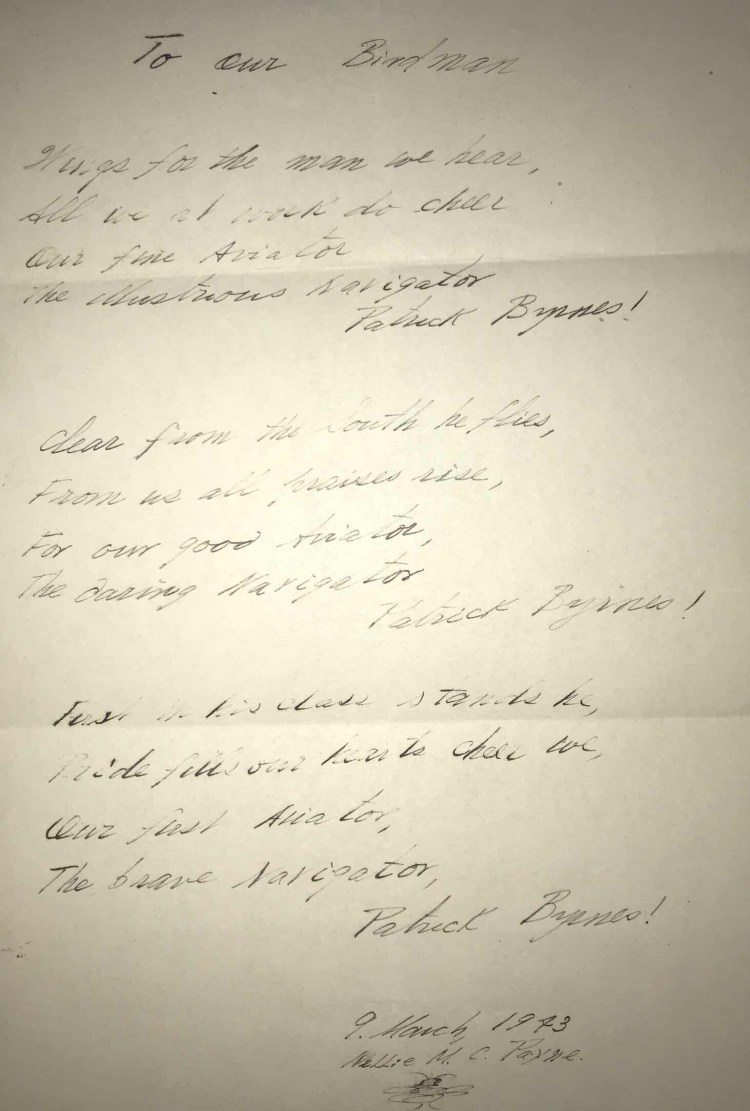 To our Birdman
Wings for the man we hear,
All we at work do cheer
Our fine Aviator
The illustrious Navigator
Patrick Byrnes!
Clear from the South he flies,
From us all praises rise,
For our good Aviator,
The daring Navigator
Patrick Byrnes!
First in his class stands he,
Pride fills our hearts cheer we,
Our first Aviator,
The brave Navigator,
Patrick Byrnes!
9. March, 1943
Nellie M. C. Payne.